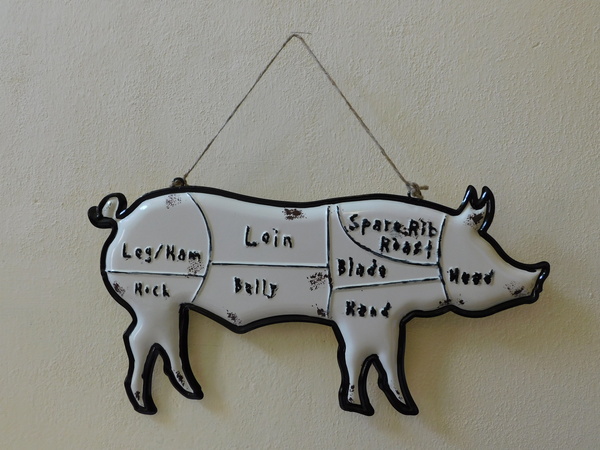 Leg/Ham
Hock
Loin
Belly
Spare Rib
Roast
Blade
Hand
Head